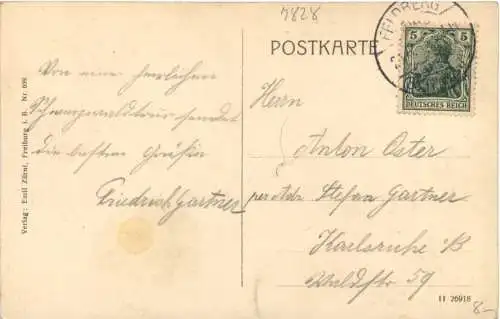 7828
FELDBERG
POSTKARTE
5 5
DEUTSCHES REICH
Von einer herrlichen
Schwarzwaldtour sendet
die besten Grüße
Friedrich Gartner
Herrn
Anton Oster
per Adr. Stefan Gartner
Karlsruhe i/B
Waldstr 59
Verlag: Emil Zürni, Freiburg i. B. Nr. 699
11 26918
8-